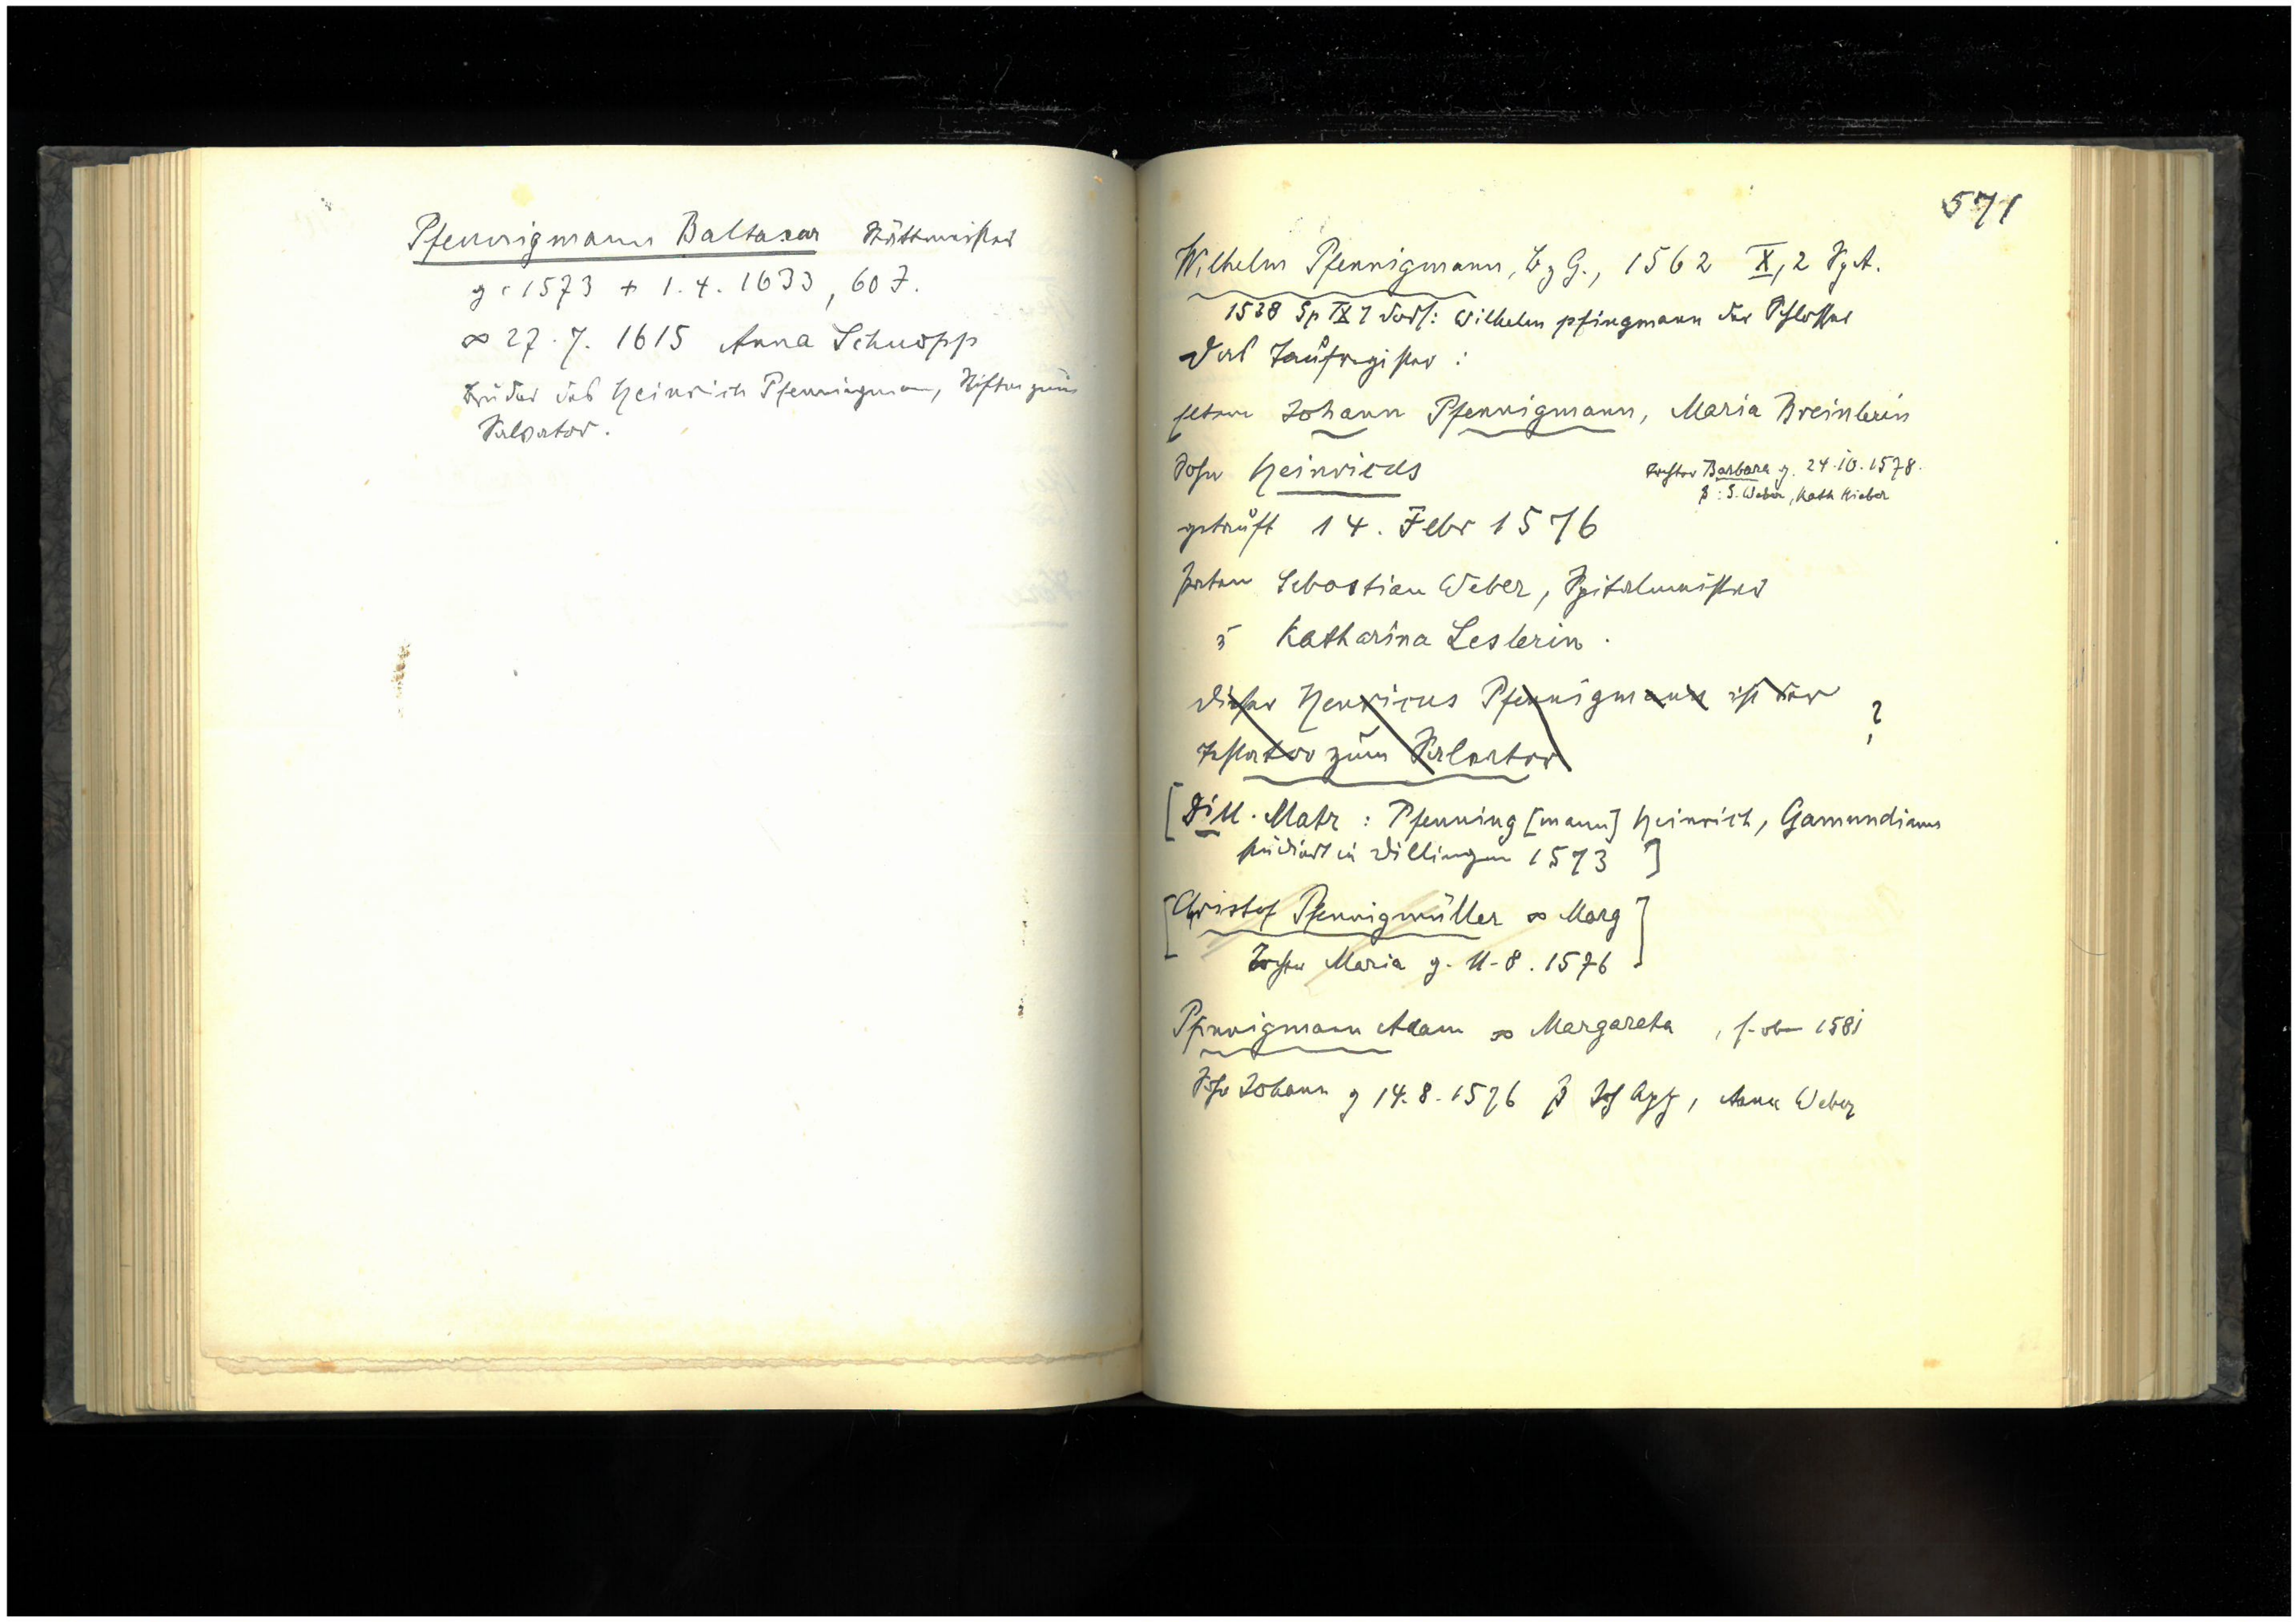 Pfennigmann Baltasar Stättmeister
g. 1573 + 1.4.1633, 60 J.
∞ 27.7.1615 Anna Schnopp
Bruder des Heinrich Pfennigmann, Stifter zum
Salvator.
571
Wilhelm Pfennigmann, B z G., 1562 X, 2 Sp A.
1538 Sp IX 7 dors: Wilhelm pfingmann der Schlosser
Das Taufregister:
Eltern Johann Pfennigmann, Maria Breinlerin
Sohn Heinricus
Tochter Barbara g. 24.10.1578.
P: S. Weber, Kath Hieber
getauft 14. Febr 1576
Paten Sebastian Weber, Spitalmeister
Katharina Leslerin.
Dieser Henricus Pfennigmann ist der ?
Testator zum Salvator
[Dill. Matr: Pfenning [mann] Heinrich, Gamundianus
studiert in Dillingen 1573 ]
[Christof Pfennigmüller ∞ Marg
Tochter Maria g. 11.8.1576 ]
Pfennigmann Adam ∞ Margareta , s. oben 1581
Sohn Johann g 14.8.1576 P Anna Weber